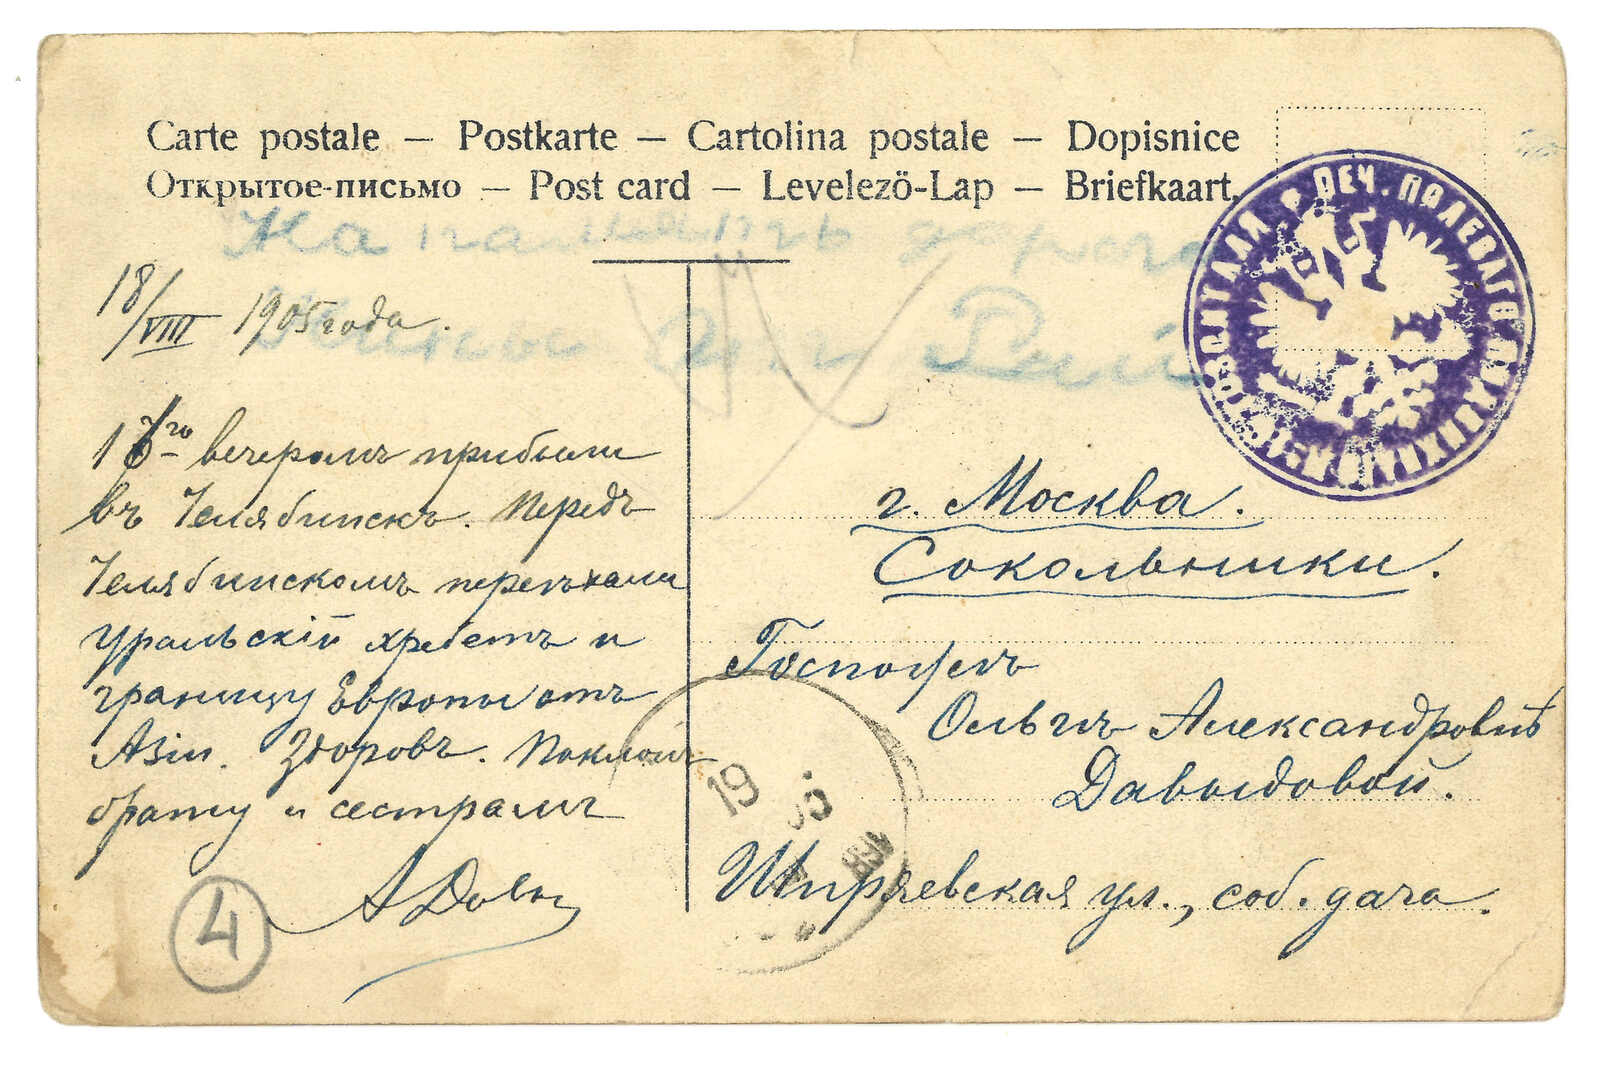 Carte postale — Postkarte — Cartolina postale — Dopisnice
Открытое-письмо — Post card — Levelezö-Lap — Briefkaart.
18/VIII 1905 года.
17го вечеромъ прибыли
въ Челябинскъ. Передъ
Челябинскомъ переѣхали
Уральскій хребетъ и
границу Европы отъ
Азіи. Здоровъ. Поклонъ
брату и сестрамъ
4
ПЕЧ. ПОЛЕВАГО
г. Москва.
Сокольники.
Госпожѣ
Ольгѣ Александровнѣ
Давыдовой.
Ширяевская ул., соб. дача.
19 05